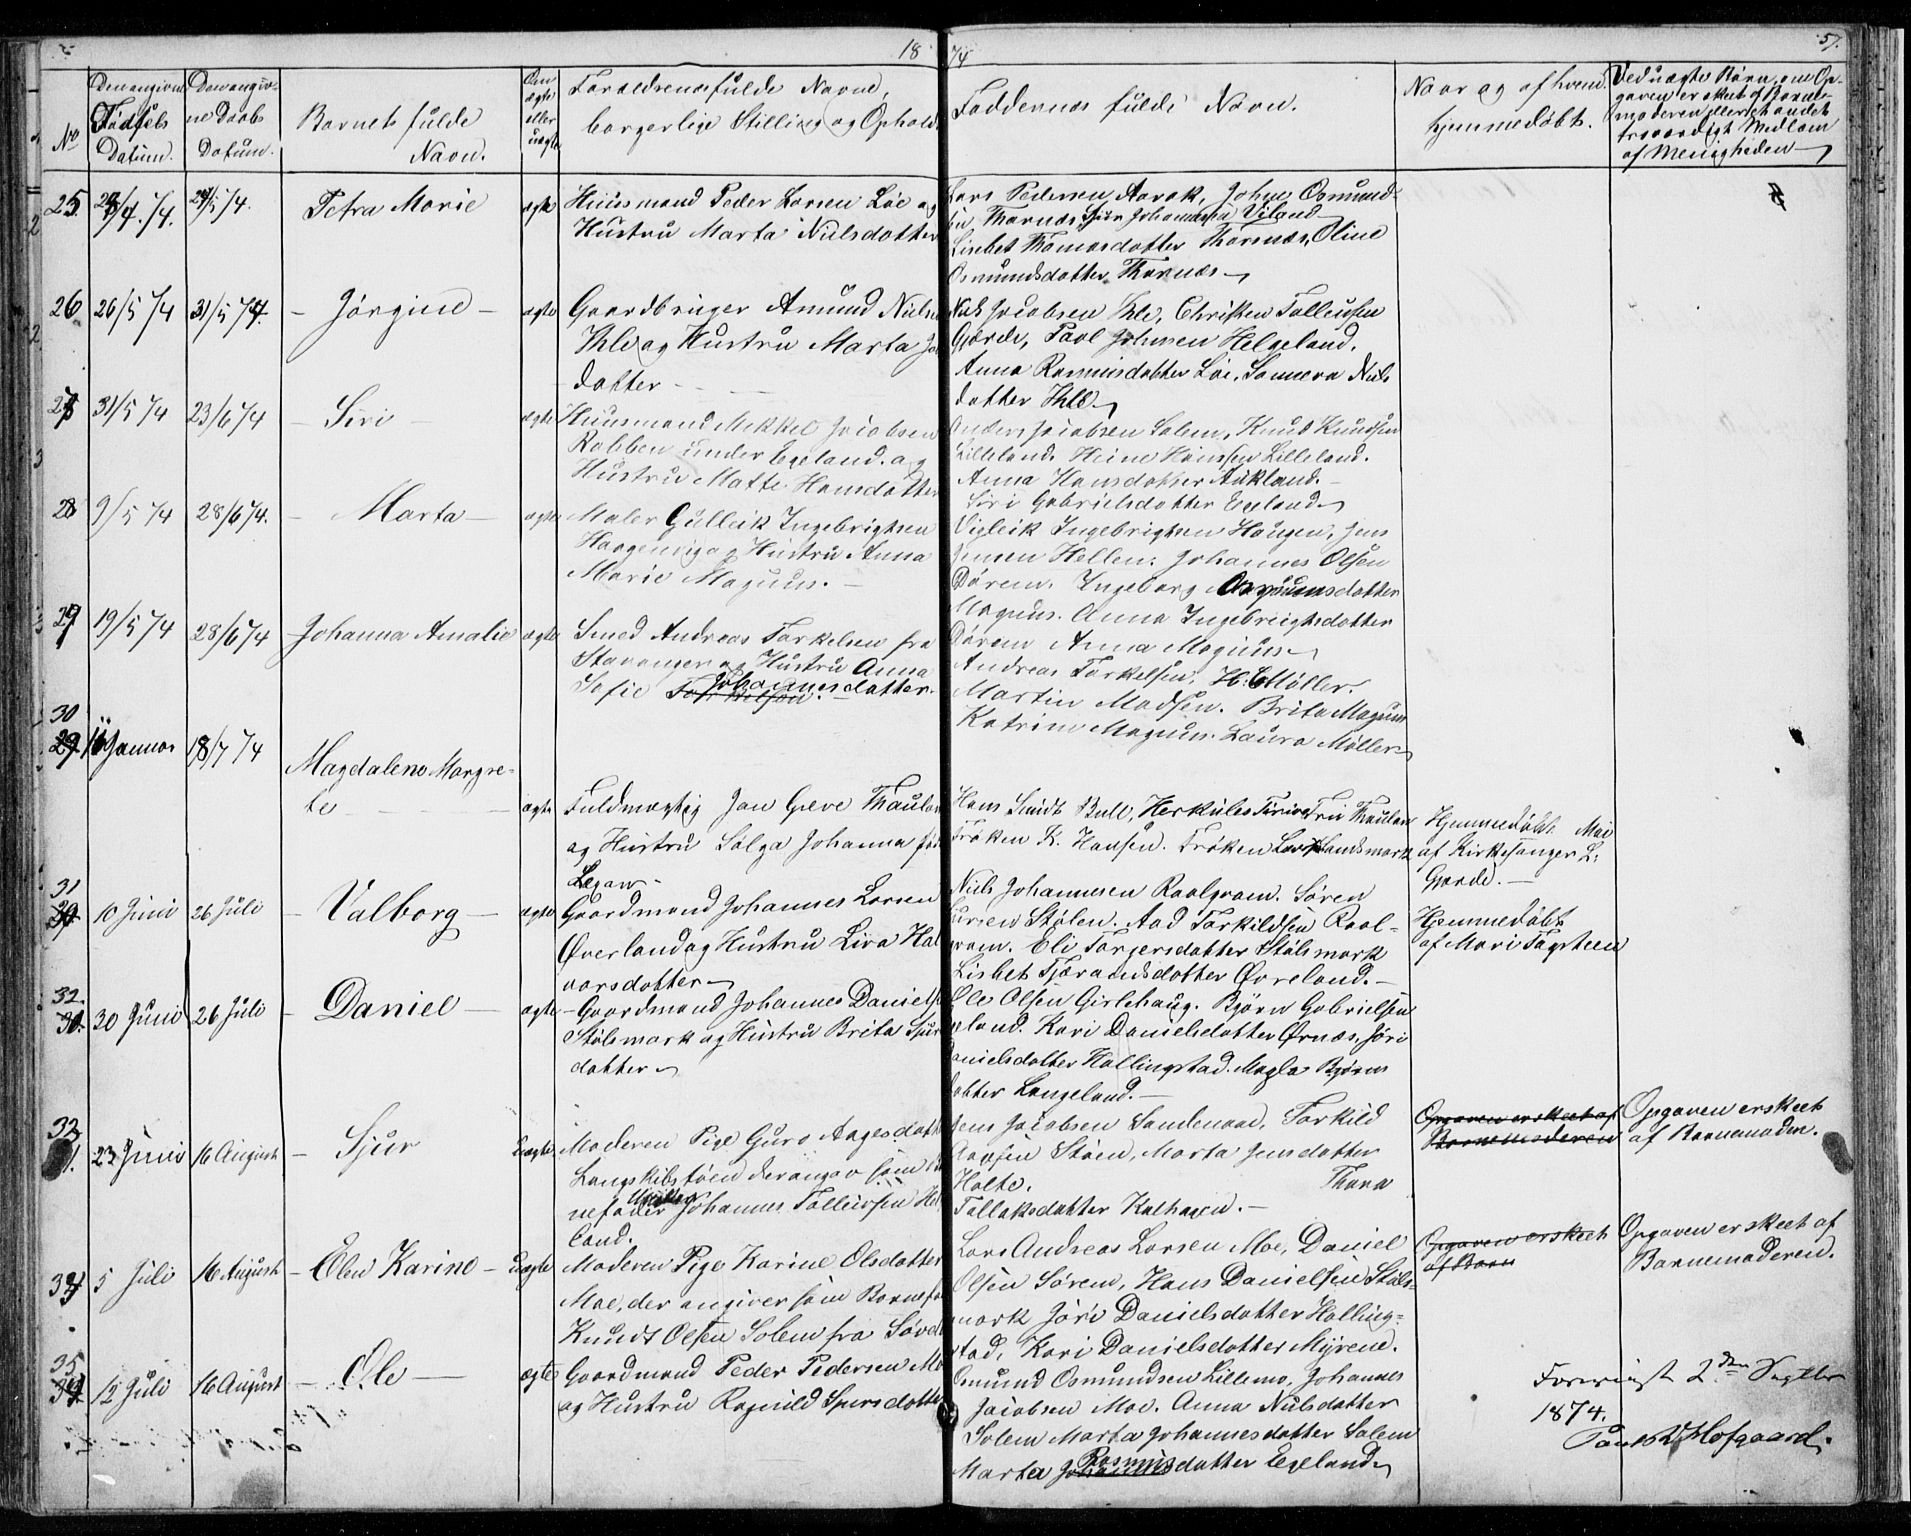 18
74
57.
No
Den angivne Fødsels Datum.
Den angivne Daabs Datum.
Barnets fulde Navn.
Om ægte eller uægte
Forældrenes fulde Navne, borgerlige Stilling og Ophold.
Faddernes fulde Navn.
Naar og af hvem hjemmedøbt.
Ved uægte Børn, om Opgaven er skeet af Barnemoderen eller et andet troværdigt Medlem af Menigheden
25. /4. 74. 24/5 74. Petra Marie ægte
Huusmand Peder Larsen Løe og
Hustru Marta Nielsdatter
Lars Pedersen Aarak, John Osmund-
sen Thornæs, Sjur Johannesen Viland
Lisbet Thomasdatter Thornæs, Oline
Osmundsdatter Thornæs
26 26/5 74 31/5 74. - Jørgine - ægte
Gaardbruger Amund Nielsen
Ihle og Hustru Marta
datter
Niels Jacobsen Ihle, Christen Talleivsen
Gjerde, Paal Johnsen Helgeland.
Anna Rasmusdatter Løe, Sannera Niels
datter Ihle
27 31/5 74 23/6 74 - Siri - ægte
Huusmand Mikkel Jacobsen
Rabben under Egeland. og
Hustru Matte Hansdatter
Anders Jacobsen Solem, Knud Knudsen
Lilleland. Heine Hanssen Lilleland.
Anna Hansdatter Aukland.
Siri Gabrielsdatter Egeland
28 9/5 74 28/6 74. - Marta - ægte
Maler Gulleik Ingebrigtsen
Haugen og Hustru Anna
Marie Magnus. -
Vigleik Ingebrigtsen Haugen, Jens
Jensen Hellen. Johannes Olsen
Søreim. Ingeborg Magnusdatter
Magnus. Anna Ingebrigtsdatter
Søreim Anna Magnus
29 19/5 74 28/6 74 Johanna Amalie ægte
Smed Andreas Torkelsen fra
Stavanger og Hustru Anna
Johannesdatter.
Sofie Torkelsen. -
Andreas Torkelsen, H. C. Møller.
Martin Madsen. Brita Magnus
Katrine Magnus. Laura Møller
30
29. Januar 18/7 74
Magdalene Margre-
te - ægte
Fuldmægtig Jan Greve Thaulow
og Hustru Solga Johanna født
Legan -
Hans Smidt Bull, Herkules Fru Thaulow
Frøken K. Hansen. Frøken Landsmark
Hjemmedøbt Mai
af Kirkesanger L.
Gjerde. -
31
30 10 Juni 26 Juli - Valborg - ægte
Gaardmand Johannes Larsen
Øverland og Hustru Liva Hal
varsdatter
Niels Johannesen Raalgram. Søren
Larsen Stølen. Aad Torkildsen Raal-
gram. Eli Torgersdatter Stølsmark
Lisbet Tjerandsdatter Øvreland. -
Hjemmedøbt
af Mari Fagsteen
32.
31. 30 Juni 26 Juli - Daniel - ægte
- Gaardmand Johannes Danielsen
Stølsmark og Hustru Brita Sjurs
datter
Ole Olsen Girlehaug. Bjørn Gabrielsen
Kari Danielsdatter Ørnæs, Jøri
Danielsdatter Hallingstad. Magla Bjørns
datter Langeland. -
33
23 Juni 16 August - Sjur uægte
Moderen Pige Guro Aagesdatter
Langskibstøen der angav som Bar
nefader Johannes Talleivsen Hel
land.
Jens Jacobsen Sandenaae, Torkild
Aagsen Støen, Marta Jensdatter
Holte. Thora
Tallaksdatter Kalhagen. -
Opgaven er skeet af
Barnemoderen
Opgaven er skeet
af Barnemoderen.
34 5 Juli 16 August - Elen Karine - uægte
Moderen Pige Karine Olsdatter
Moe, der angiver som Barnefader
Knudt Olsen Solem fra Søvde
Lars Andreas Larsen Moe, Daniel
Olsen Sørem, Hans Danielsen Støls-
mark Jøri Danielsdatter Halling-
stad, Kari Danielsdatter Myrene.
Opgaven er skeet
af Barn
Opgaven er skeet af
Barnemoderen.
35
34 12 Juli 16 August - Ole - ægte
Gaardmand Peder Pedersen Mo
og Hustru Ragnild Sjursdatter
Osmund Osmundsen Lillemo, Johannes
Jacobsen Moe. Anna Nielsdatter
Solem Marta Johannesdatter Solem
Rasmus
Marta Johannesdatter Egeland
Foreviist 2den Septbr
1874.
Hofgaard.